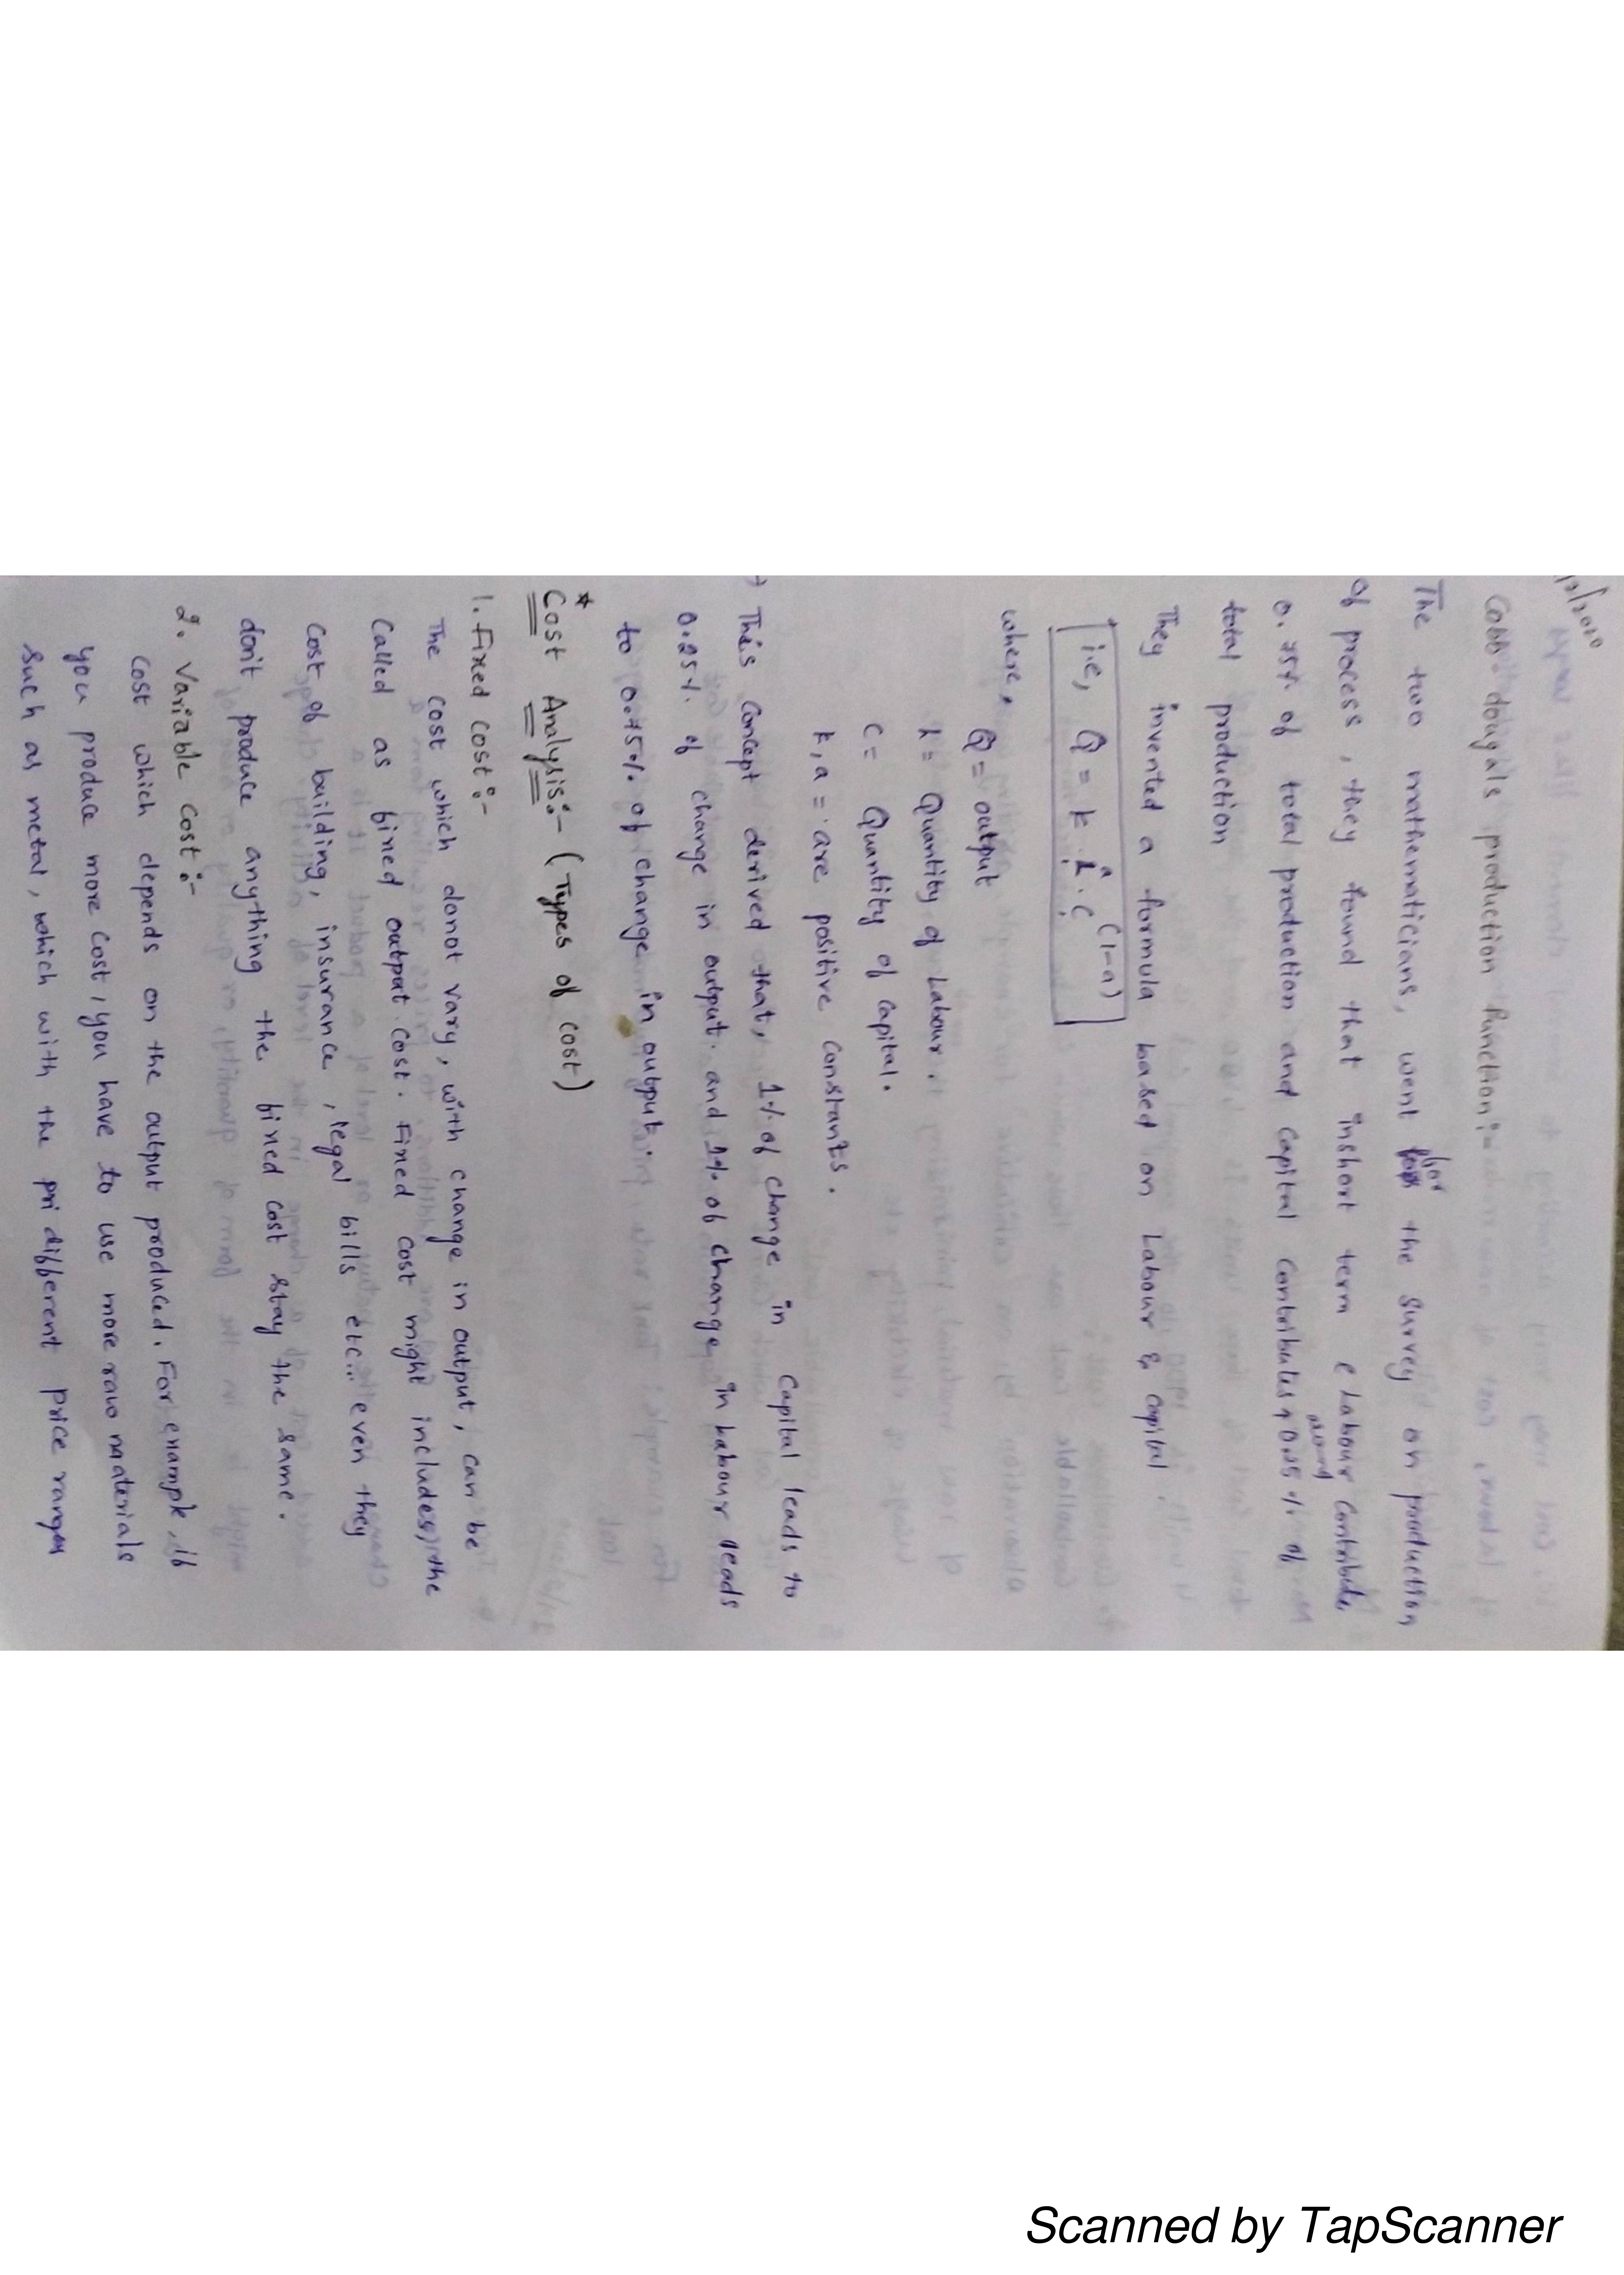 Cobb dougals production function:-
The two mathematicians, went for the survey on production
of process, they found that inshort term e Labour contribute,
0.75%. of total production and capital contributes around 0.25 %. of
total production
They invented a formula based on Labour & capital.
i.e, Q = k. L^a. C^(1-a)
where,
Q = output
L = Quantity of Labour.
C = Quantity of capital.
k, a = are positive constants.
This concept derived that, 1%. of change in capital leads to
0.25%. of change in output. and 1%. of change in Labour leads
to 0.75%. of change in output
* Cost Analysis:- (Types of cost)
1. Fixed cost:-
The cost which donot vary, with change in output, can be
called as fixed output cost. Fixed cost might includes, the
cost of building, insurance, legal bills etc... even they
don't produce anything the fixed cost stay the same.
2. Variable cost:-
cost which depends on the output produced. For example, if
you produce more cost, you have to use more raw materials
such as metal, which with the pri different price ranges
Scanned by TapScanner